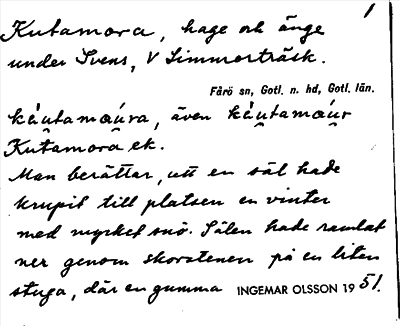 1
Kutamora, hage och änge
under Svens, V Limmorträsk.
Fårö sn, Gotl. n. hd, Gotl. län.
kåutamoura, även kåutamour
Kutamora ek.
Man berättar, att en säl hade
krupit till platsen en vinter
med mycket snö. Sälen hade ramlat
ner genom skorstenen på en liten
stuga, där en gumma INGEMAR OLSSON 1951.